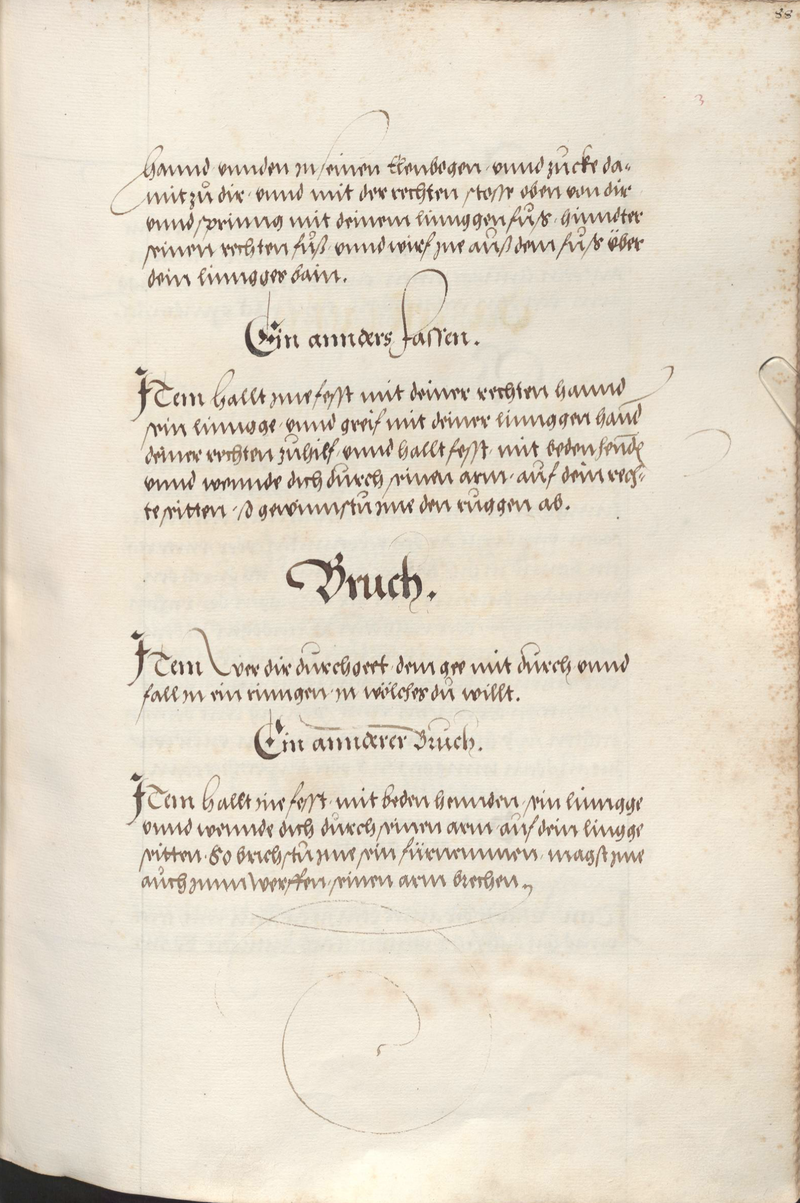 88
3
hannd vnnden in seinen Elenbogen · vnnd zucke da=
mit zu dir · vnnd mit der rechten stosse oben von dir
vnnd spring mit deinem linnggen fuß · hinndter
seinen rechten fuß · vnnd wirf ine auß dem fuß über
dein linngges bain.
Ein annders fassen.
ITem Hallt ine fesst mit deiner rechten hannd
sein linngge · vnnd greif mit deiner linnggen hannd
deiner rechten zuhilf · vnnd hallt fesst · mit beden hennden
vnnd wennde dich durch seinen arm · auf dein rech=
te seitten · So gewinnstu ime den ruggen ab.
Bruch.
ITem wer dir durchgeet · dem gee mit durch vnnd
fall in ein rinngen · in wölches du willt.
Ein annderer Bruch.
ITem Hallt ine fesst · mit beden hennden · sein linngge
vnnd wennde dich durch seinen arm · auf dein lingge
seitten · So brichstu ime sein fürnemmen · magst ime
auch inn Werffen · seinen arm brechen.